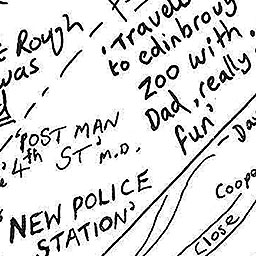 E ROUGH
was
'Travelle
to edinbroug
Zoo with
Dad, really
fun'
'POST MAN
4th ST' M.D.
'NEW POLICE
STATION'
Coope
Close